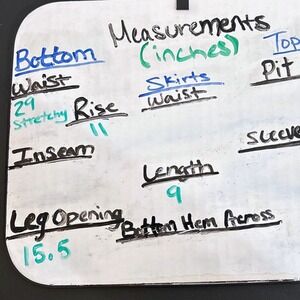 Measurements
(inches)
Bottom
Waist
29
Stretchy
Rise
11
Inseam
Leg Opening
15.5
Skirts
Waist
Length
9
Bottom Hem Across
Top
Pit
Sleeve